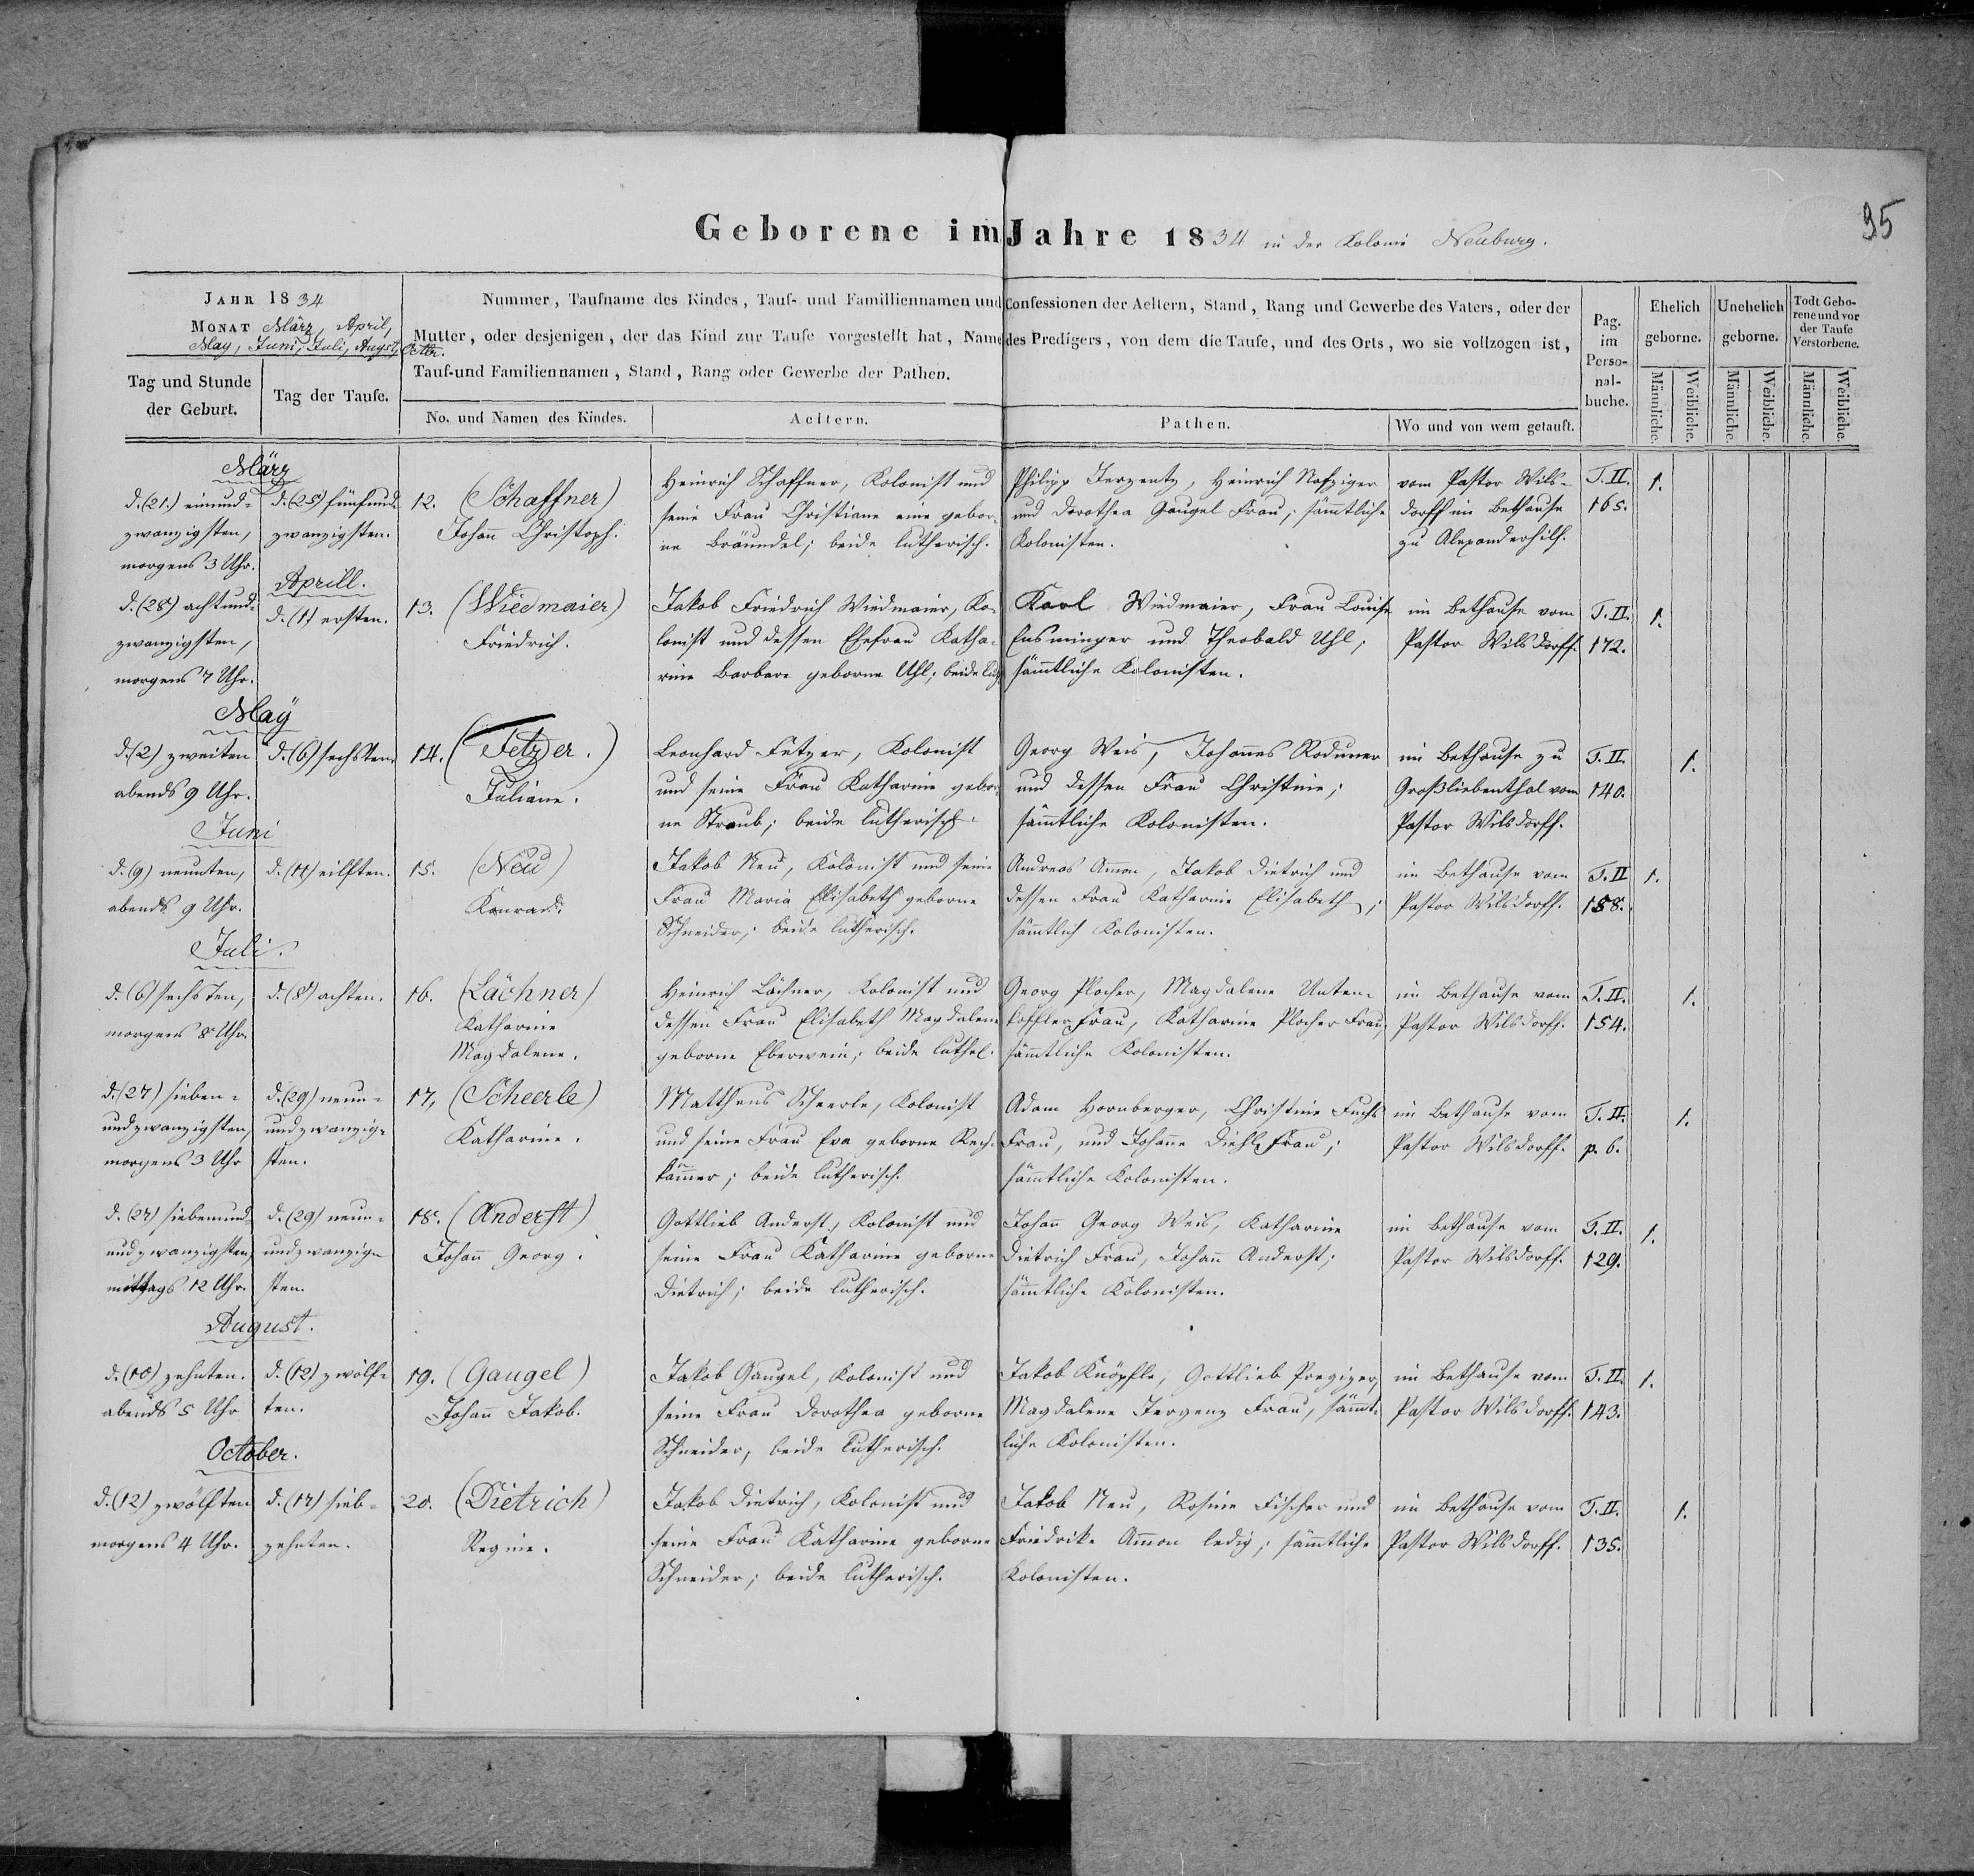 95
Geborene im Jahre 1834 in der Kolonie Neuburg.
JAHR 1834
MONAT März, April,
May, Juni, Juli, Augst, Octbr.
Tag und Stunde
der Geburt.
Tag der Taufe.
Nummer, Taufname des Kindes, Tauf- und Familliennamen und Confessionen der Aeltern, Stand, Rang und Gewerbe des Vaters, oder der
Mutter, oder desjenigen, der das Kind zur Taufe vorgestellt hat, Name des Predigers, von dem die Taufe, und des Orts, wo sie vollzogen ist,
Tauf-und Familiennamen, Stand, Rang oder Gewerbe der Pathen.
No. und Namen des Kindes.
Aeltern.
Pathen.
Wo und von wem getauft.
Pag.
im
Perso-
nal-
buche.
Ehelich
geborne.
Unehelich
geborne.
Todt Gebo-
rene und vor
der Taufe
Verstorbene.
Männliche.
Weibliche.
Männliche.
Weibliche.
Männliche.
Weibliche.
März
d. (21.) einund-
zwanzigsten,
morgens 3 Uhr.
d. (25) fünfund-
zwanzigsten.
12. (Schaffner)
Johan̄ Christoph.
Heinrich Schaffner, Kolonist und
seine Frau Christiane eine gebor-
ne Bräundel; beide lutherisch.
Philipp Jergentz, Heinrich Nafziger
und Dorothea Gaugel Frau; säm̄tliche
Kolonisten.
vom Pastor Wils-
dorff im Bethause
zu Alexanderhilf.
T. II.
165.
1.
d. (28) achtund-
zwanzigsten,
morgens 7 Uhr.
Aprill.
d. (1) ersten.
13. (Wiedmaier)
Friedrich.
Jakob Friedrich Wiedmaier, Ko-
lonist und dessen Ehefrau Katha-
rine Barbara geborne Uhl; beide luth.
Karl Wiedmaier, Frau Louise
Ensminger und Theobald Uhl;
säm̄tliche Kolonisten.
im Bethause vom
Pastor Wilsdorff.
T. II.
172.
1.
May
d. (2) zweiten
abends 9 Uhr.
d. (6) sechsten.
14. (Fetzer.)
Juliane.
Leonhard Fetzer, Kolonist
und seine Frau Katharine gebor-
ne Straub; beide lutherisch.
Georg Weis, Johan̄es Roduner
und dessen Frau Christine;
säm̄tliche Kolonisten.
im Bethause zu
Großliebenthal vom
Pastor Wilsdorff.
T. II.
140.
1.
Juni
d. (9) neunten,
abends 9 Uhr.
d. (11) eilften.
15. (Neu)
Konrad.
Jakob Neu, Kolonist und seine
Frau Maria Elisabeth geborne
Schneider; beide lutherisch.
Andreas Am̄on, Jakob Dietrich und
dessen Frau Katharine Elisabeth;
säm̄tlich Kolonisten.
im Bethause vom
Pastor Wilsdorff.
T. II
158.
1.
Juli.
d. (6) sechsten,
morgens 8 Uhr.
d. (8) achten.
16. (Lächner)
Katharine
Magdalene.
Heinrich Lächner, Kolonist und
dessen Frau Elisabeth Magdalene
geborne Eberwein; beide luthe.
Georg Plocher, Magdalene Unten-
koffler Frau, Katharine Plocher Frau;
säm̄tliche Kolonisten.
im Bethause vom
Pastor Wilsdorff.
T. II.
154.
1.
d. (27) sieben-
undzwanzigsten,
morgens 3 Uhr
d. (29) neun-
undzwanzig-
sten.
17. (Scheerle)
Katharine.
Mattheus Scheerle, Kolonist
und seine Frau Eva geborne Rech-
käm̄er; beide lutherisch.
Adam Hornberger, Christine Fuchs
Frau, und Johanne Diehl Frau;
säm̄tliche Kolonisten.
im Bethause vom
Pastor Wilsdorff.
T. II.
p. 6.
1.
d. (27) siebenund-
undzwanzigsten
mittags 12 Uhr.
d. (29) neun-
undzwanzig-
sten.
18. (Anderst)
Johan̄ Georg.
Gottlieb Anderst, Kolonist und
seine Frau Katharine geborne
Dietrich; beide lutherisch.
Johan̄ Georg Weis, Katharine
Dietrich Frau, Johan̄ Anderst;
säm̄tliche Kolonisten.
im Bethause vom
Pastor Wilsdorff.
T. II.
129.
1.
August.
d. (10) zehnten.
abends 5 Uhr
d. (12) zwölf-
ten.
19. (Gaugel)
Johan̄ Jakob.
Jakob Gaugel, Kolonist und
seine Frau Dorothea geborne
Schneider; beide lutherisch.
Jakob Knöpfle, Gottlieb Pregizer,
Magdalene Jergenz Frau, säm̄t-
liche Kolonisten.
im Bethause vom
Pastor Wilsdorff.
T. II.
143.
1.
October.
d. (12) zwölften
morgens 4 Uhr.
d. (17) sieb-
zehnten.
20. (Dietrich)
Regine.
Jakob Dietrich, Kolonist und
seine Frau Katharine geborne
Schneider; beide lutherisch.
Jakob Neu, Rosine Fischer und
Friedrike Am̄on ledig; säm̄tliche
Kolonisten.
im Bethause vom
Pastor Wilsdorff.
T. II.
135.
1.